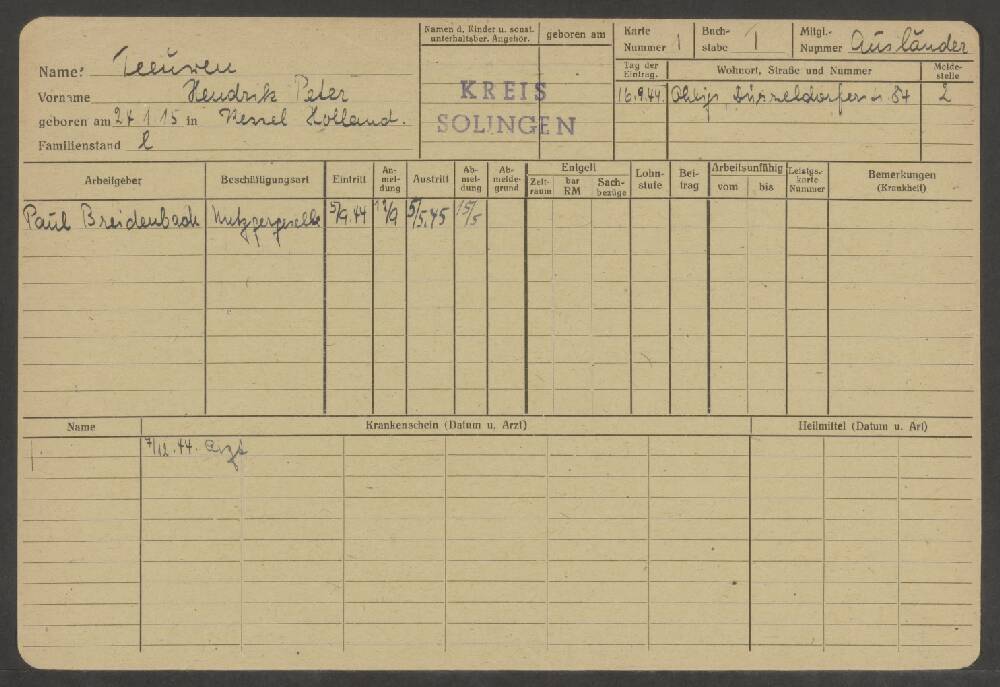 Name: Teeuwen
Vorname Hendrik Peter
geboren am 24 1 15 in Kessel Holland.
Familienstand l
Namen d. Kinder u. sonst. unterhaltsber. Angehör.
geboren am
KREIS
SOLINGEN
Karte Nummer 1
Buchstabe T
Mitgl.-Nummer Ausländer
Tag der Eintrag.
Wohnort, Straße und Nummer
Meldestelle
16.9.44. Ohligs Düsseldorfer 84 2
Arbeitgeber
Beschäftigungsart
Eintritt
An-mel-dung
Austritt
Ab-mel-dung
Ab-melde-grund
Entgelt
Zeit-raum
bar RM
Sach-bezüge
Lohn-stufe
Bei-trag
Arbeitsunfähig
vom
bis
Leistgs.-karte Nummer
Bemerkungen
(Krankheit)
Paul Breidenbach Metzgergeselle 5/9.44 12/9 5/5.45 15/5
Name
Krankenschein (Datum u. Arzt)
Heilmittel (Datum u. Art)
7/12.44. Arzt